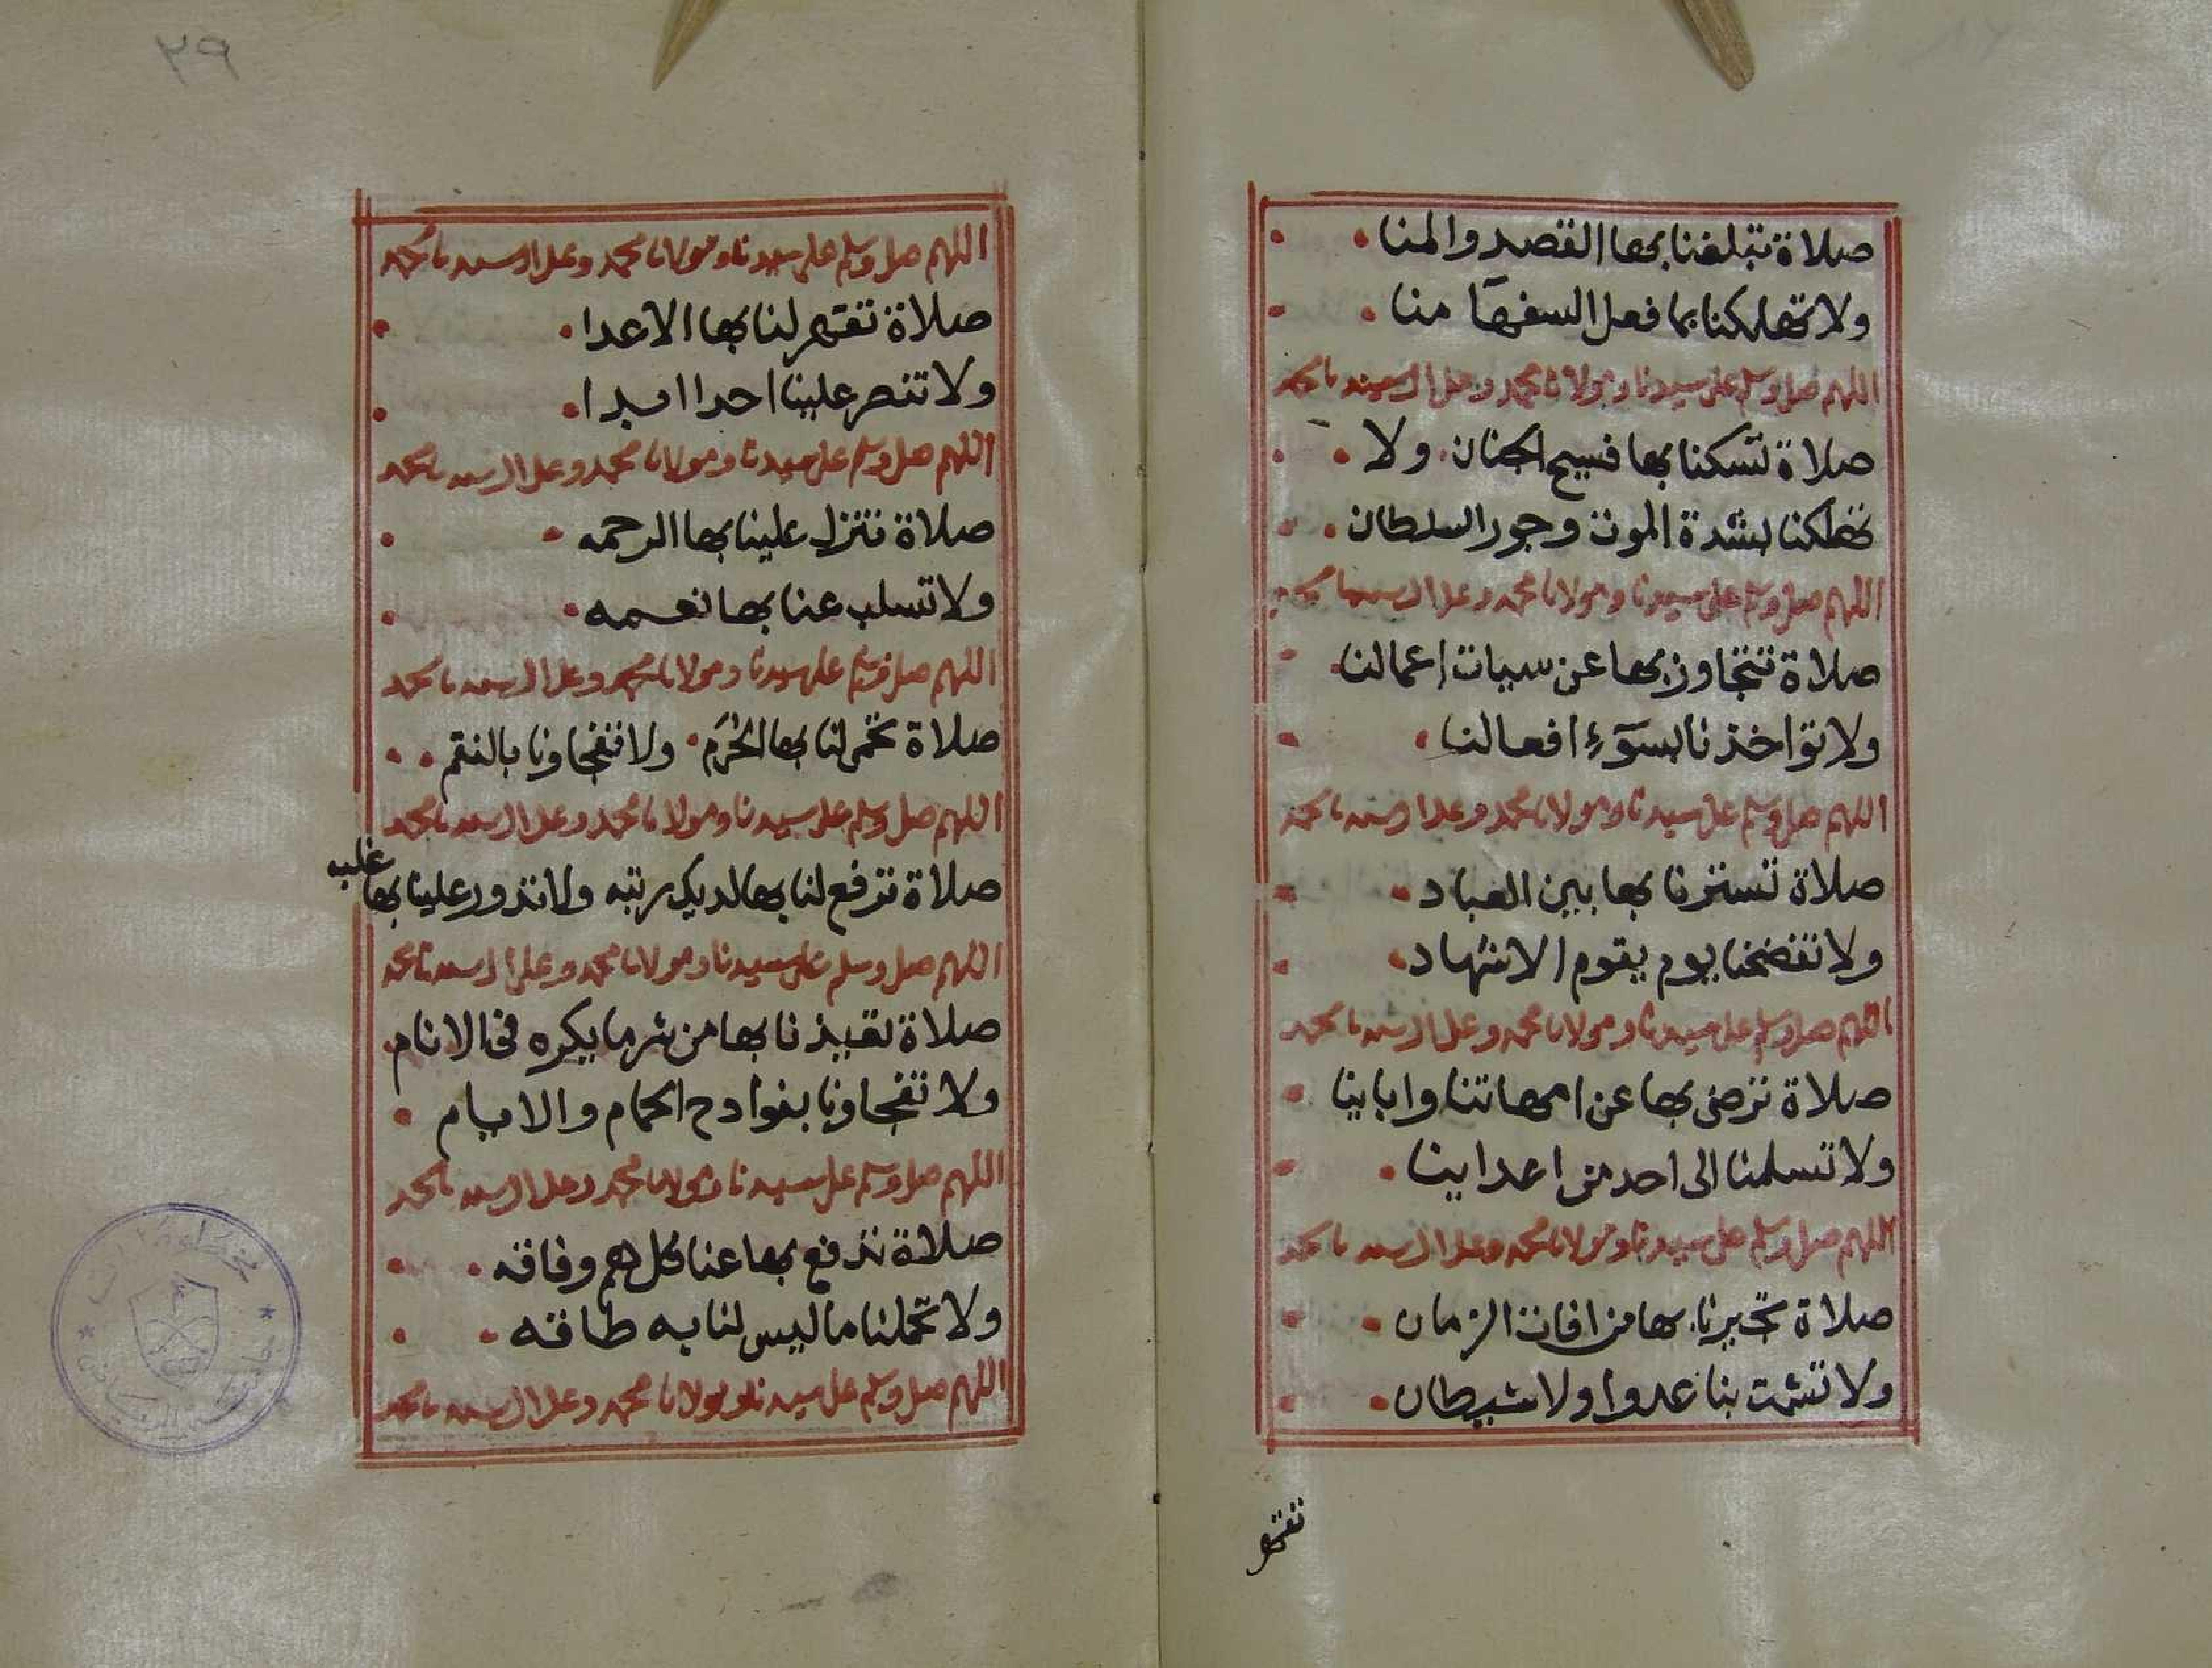 صلاة تبلغنا بها القصد والمنا
ولا تهلكنا بما فعل السفهآ منا
اللهم صل وسلم على سيدنا ومولانا محمد وعلى ال سيدنا محمد
صلاة تسكنا بها فسيح الجنان ولا
تهلكنا بشدة الموت وجور السلطان
اللهم صل وسلم على سيدنا ومولانا محمد وعلى ال سيدنا محمد
صلاة تتجاوز بها عن سيات اعمالنا
ولا تواخذنا بسوٓء افعالنا
اللهم صل وسلم على سيدنا ومولانا محمد وعلى ال سيدنا محمد
صلاة تسترنا بها بين العباد
ولا تفضحنا يوم يقوم الاشهاد
اللهم صل وسلم على سيدنا ومولانا محمد وعلى ال سيدنا محمد
صلاة ترضى بها عن امهاتنا وابابنا
ولا تسلمنا الى احد من اعداينا
اللهم صل وسلم على سيدنا ومولانا محمد وعلى ال سيدنا محمد
صلاة تجيرنا بها من افات الزمان
ولا تشمت بنا عدوا ولا شيطان
تقهر
٢٩
اللهم صل وسلم على سيدنا ومولانا محمد وعلى ال سيدنا محمد
صلاة تقهر لنا بها الاعدا
ولا تنصر علينا احدا ابدا
اللهم صل وسلم على سيدنا ومولانا محمد وعلى ال سيدنا محمد
صلاة تنزل علينا بها الرحمه
ولا تسلب عنا بها نعمه
اللهم صل وسلم على سيدنا ومولانا محمد وعلى ال سيدنا محمد
صلاة تحمى لنا بها الحُرَم ولا تفجاونا بالنقم
اللهم صل وسلم على سيدنا ومولانا محمد وعلى ال سيدنا محمد
صلاة ترفع لنا بها لديك رتبه ولا تدور علينا بها غلبه
اللهم صل وسلم على سيدنا ومولانا محمد وعلى ال سيدنا محمد
صلاة تعيذنا بها من شر ما يكره فى الانام
ولا تفجاونا بفوادح الحمام والايام
اللهم صل وسلم على سيدنا ومولانا محمد وعلى ال سيدنا محمد
صلاة تدفع بها عنا كل هم وفاقه
ولا تحملنا ما ليس لنا به طاقه
اللهم صل وسلم على سيدنا ومولانا محمد وعلى ال سيدنا محمد